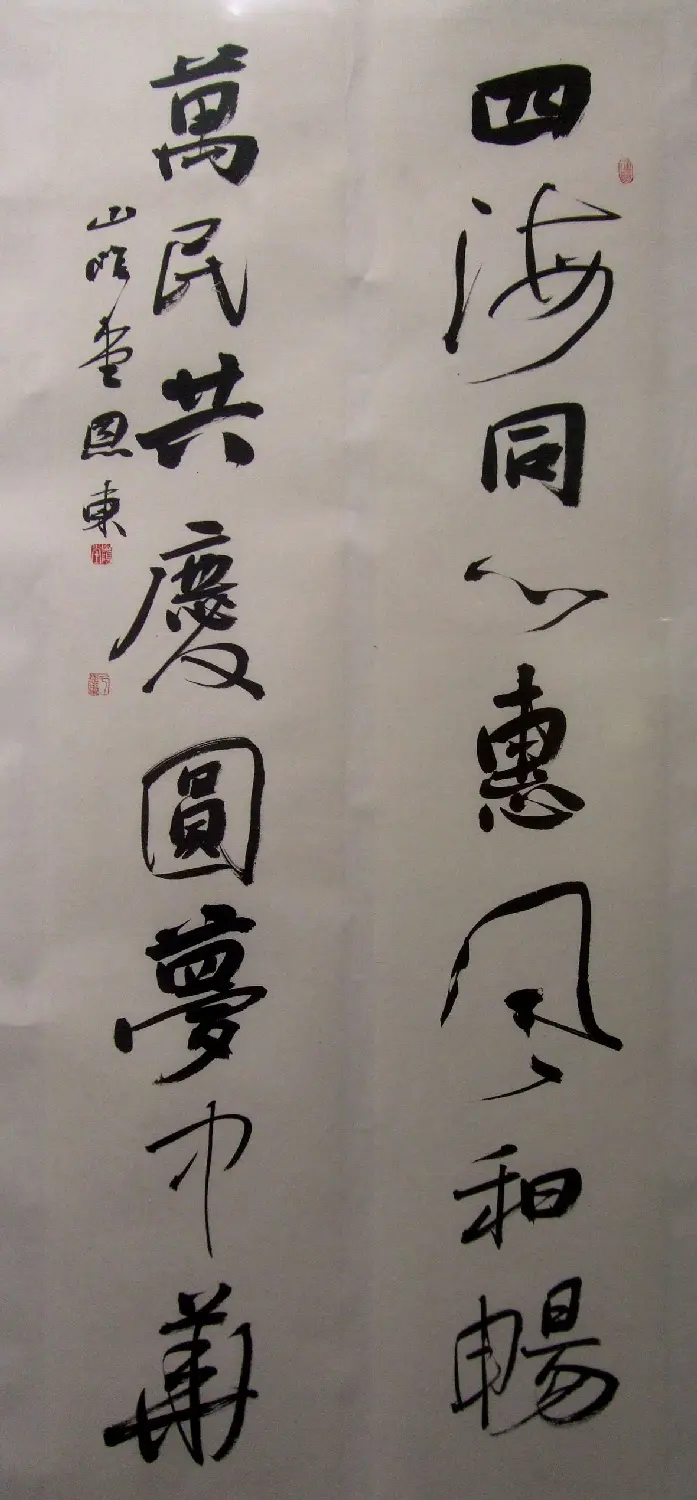 四海同心惠風和暢
萬民共慶圓夢中華
山 堂恩東